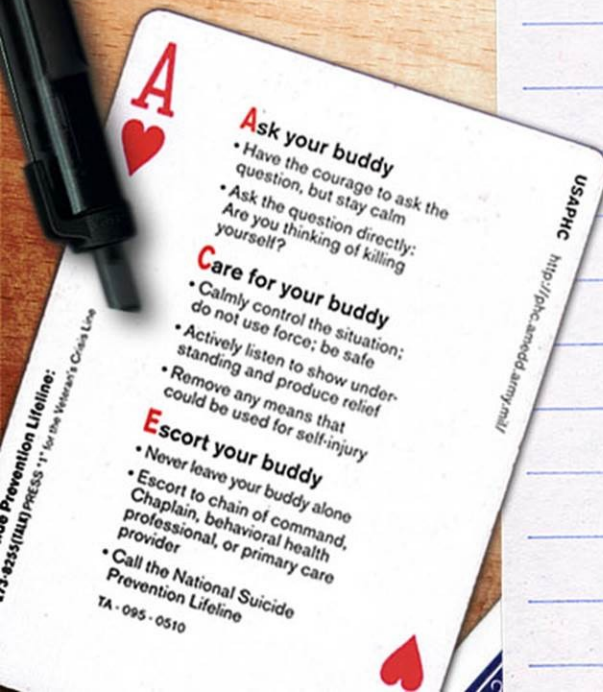 A
Ask your buddy
• Have the courage to ask the
question, but stay calm
• Ask the question directly:
Are you thinking of killing
yourself?
Care for your buddy
• Calmly control the situation;
do not use force; be safe
• Actively listen to show under-
standing and produce relief
• Remove any means that
could be used for self-injury
Escort your buddy
• Never leave your buddy alone
• Escort to chain of command,
Chaplain, behavioral health
professional, or primary care
provider
• Call the National Suicide
Prevention Lifeline
TA - 095 - 0510
USAPHC http://phc.amedd.army.mil/
Prevention Lifeline:
273-8255(TALK) PRESS "1" for the Veteran's Crisis Line